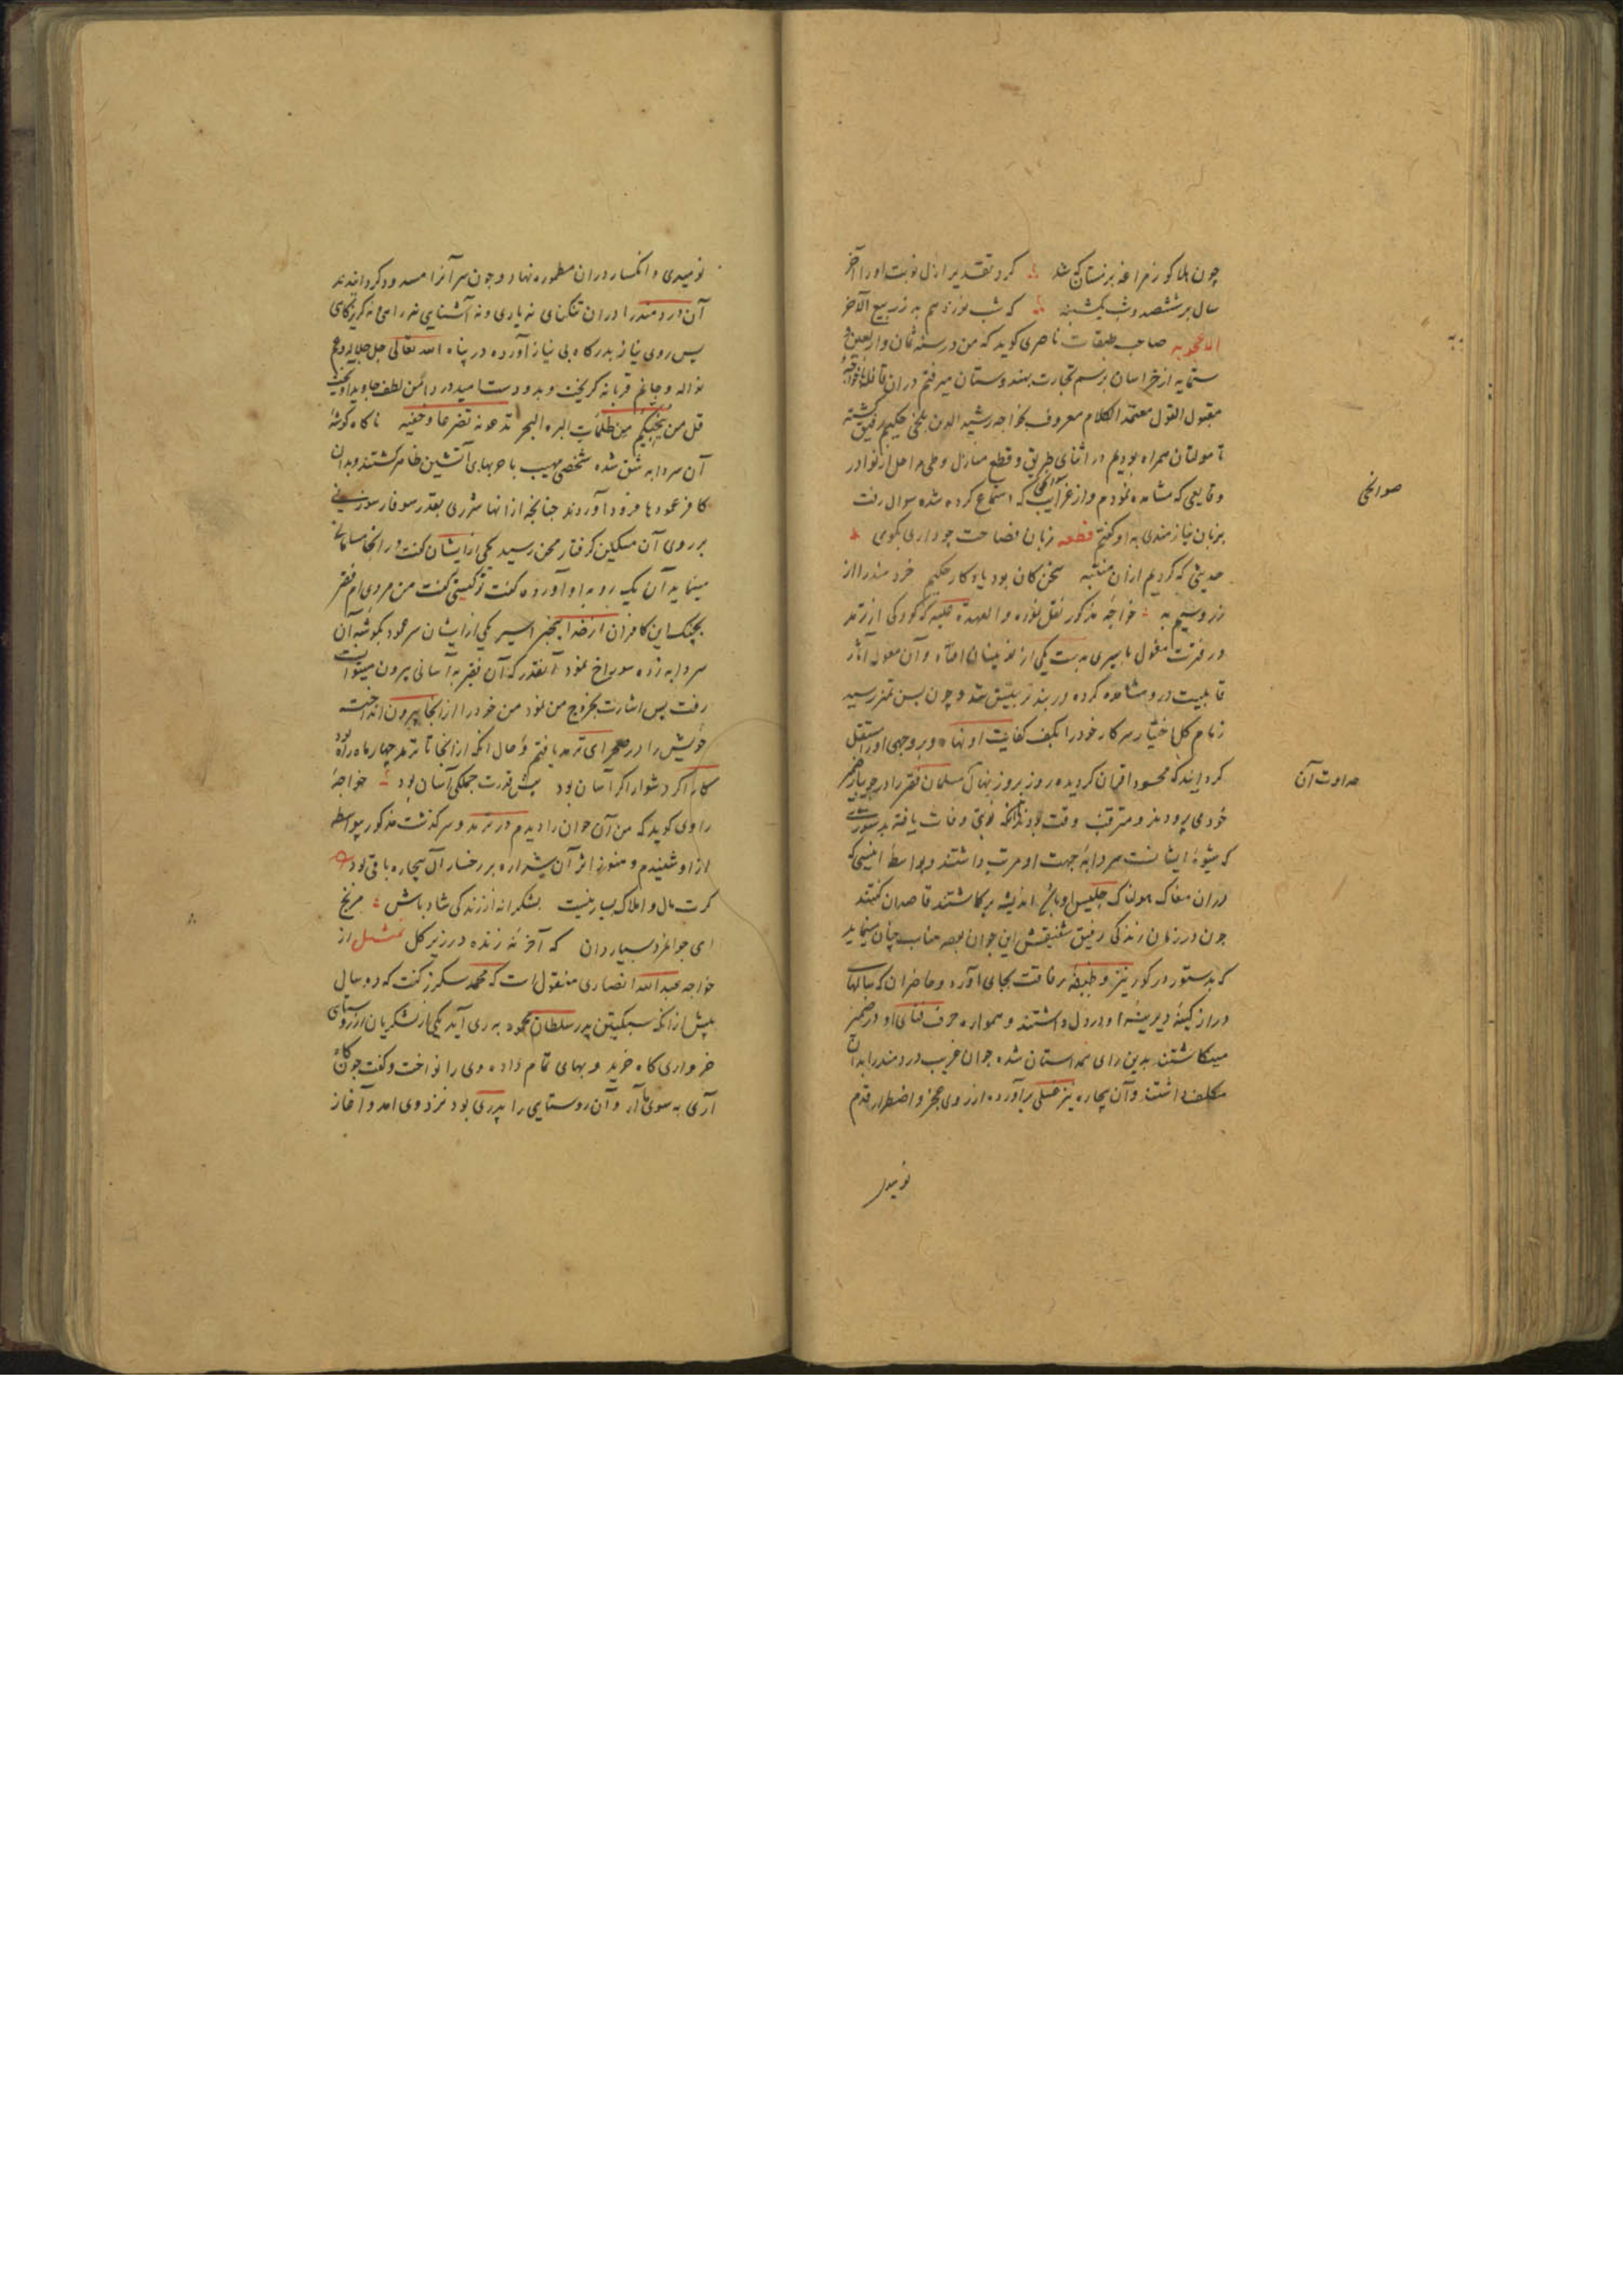 چون هلاکو ز مراغه بزمستان که شد کرد تقدیر ازل نوبت او را آخر
سال بر ششصد و شب یکشنبه که شب نوزدهم بد ز ربیع الآخر
صاحب طبقات ناصری کوید که من در سنه ثمان و اربعین و
ستمایه از خراسان برسم تجارت بهندوستان میرفتم دران قافله خواجهٔ
مقبول القول معتمد الکلام معروف بخواجه رشید الدین بلخی حکیم رفیق کشته
تا مولتان همراه بودیم در اثنای طریق و قطع منازل و طی مراحل از نوادر
وقایعی که مشاهده نمودم و از غرایب که استماع کرده شده سوال رفت
بزبان نیازمندی به او کفتم قطعه زبان فصاحت چو داری بکوی
حدیثی که کردیم ازان منتبه سخن کان بود یادکار حکیم خردمند را از
زر و سیم به خواجه مذکور نقل نموده والعهدة علیه که کودکی از ترمد
در فترت مغول باسیری بدست یکی از نوینان افتاد و آن مغول آثار
قابلیت درو مشاهده کرده در بند تربیتش شد و چون بسن تمیز رسید
زمام کل اختیار سرکار خود را بکف کفایت او نهاد و بر وجهی او را مستقل
کردانید که محسود اقران کردیده روز بروز نهال مسلمان فقیر را در جویبار ضمیر
خود می پروردند و مترقب وقت بودند تا آنکه نوین وفات یافته بدستوری
که شیوهٔ ایشانست سردابهٔ جهت او مرتب داشتند و بواسطهٔ انیسی که
دران مغاک هولناک جلیس او باشد اندیشه برکماشتند قاصدان کفتند
چون در زمان زندکی رفیق شفیقش این جوان بود مناسب چنان مینماید
که بدستور در کور نیز وظیفهٔ رفاقت بجای آورد و حاضران که سالهای
دراز کینهٔ دیرینهٔ او در دل داشتند و همواره حرف فنای او در ضمیر
میکاشتند بدین رای همداستان شده جوان غریب دردمند را بدان
مکلف داشتند و آن بیچاره نیز غسلی برآورده از روی عجز و اضطرار قدم
نومیدی
صوالحی
عداوت آن
نومیدی و انکسار دران مطموره نهاد و چون سر آنرا مسدود کردانیدند
آن دردمند را دران تنکنای نه یاری و نه آشنایی نه راهی و نه کریزکاهی
پس روی نیاز بدرکاه بی نیاز آورده در پناه الله تعالی جل جلاله و عم
نواله و جانم قربانه کریخت و بدو دست امید در دامن لطف جاوید آویخت
قل من ینجیکم من ظلمات البر و البحر تدعونه تضرعا و خفیه ناکاه کوشهٔ
آن سردابه شق شده شخصی مهیب با حربهای آتشین ظاهر کشتند و بدان
کافر عمودها فرود آوردند چنانچه از آنها شرری بقدر سوفار سوزنی
بر روی آن مسکین کرفتار محن رسید یکی از ایشان کفت در اینجا مسلمانی
مینماید آن یک رو به او آورده کفت تو کیستی کفت من مردی ام فقیر
بچنک این کافران از خدا بیخبر اسیر یکی از ایشان سر عمود بکوشهٔ آن
سردابه زده سوراخ نمود آنقدر که آن فقیر به آسانی بیرون میتوانست
رفت پس اشارت بخروج من نمود من خود را از انجا بیرون انداخته
خویش را در صحرای ترمد یافتم و حال آنکه از انجا تا ترمد چهار ماه راه بود
کار اکر دشوار اکر آسان بود پیش قدرت جملکی آسان بود خواجهٔ
راوی کوید که من آن جوان را دیدم در ترمد و سرکذشت مذکور بیواسطه
از او شنیدم و هنوز اثر آن شراره بر رخسار آن بیچاره باقی بود
کرت مال و املاک بسیار نیست بشکرانه از زندکی شاد باش مرنج
ای جوانمرد بسیار دان که آخر نه زنده در زیر کل تمثیل از
خواجه عبدالله انصاری منقول است که محمد سکرز کفت که دو سال
پیش از انکه سبکتکین پدر سلطان محمود به ری آید یکی از لشکریان از روستایی
خرواری کاه خرید و بهای تمام داده وی را نواخت و کفت چون کاه
آری به سوی ما آر و آن روستایی را پدری بود نزد وی آمد و آغاز